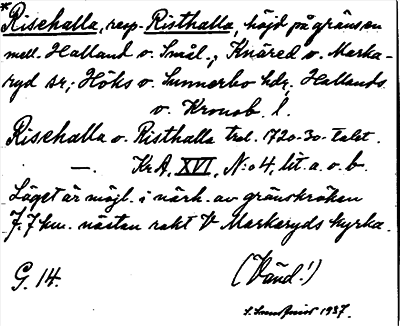 *Risehalla, resp. Risthalla, höjd på gränsen
mell. Halland o. Smål.; Knäred o. Marka-
ryd sr; Höks o. Sunnerbo hdr, Hallands
o. Kronob. l.
Risehalla o. Risthalla trol. 1720-30-talet.
—. Kr.A. XVI, N:o 4, lit. a. o. b.
Läget är möjl. i närh. av gränskröken
7.7 km. nästan rakt V Markaryds kyrka.
G. 14. (Vänd!)
1937.